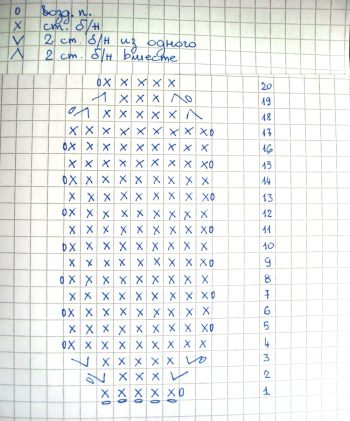 0 возд. п.
x ст. б/н
V 2 ст. б/н из одного
Λ 2 ст. б/н вместе
0 x x x x x 20
Λ x x x Λ 0 19
0 Λ x x x x x Λ 18
x x x x x x x x x 0 17
0 x x x x x x x x x 16
x x x x x x x x x 0 15
0 x x x x x x x x x 14
x x x x x x x x x 0 13
0 x x x x x x x x x 12
x x x x x x x x x 0 11
0 x x x x x x x x x 10
x x x x x x x x x 0 9
0 x x x x x x x x x 8
x x x x x x x x x 0 7
0 x x x x x x x x x 6
x x x x x x x x x 0 5
0 x x x x x x x x x 4
V x x x x x V 0 3
0 V x x x V 2
x x x x x 0 1
0 0 0 0 0